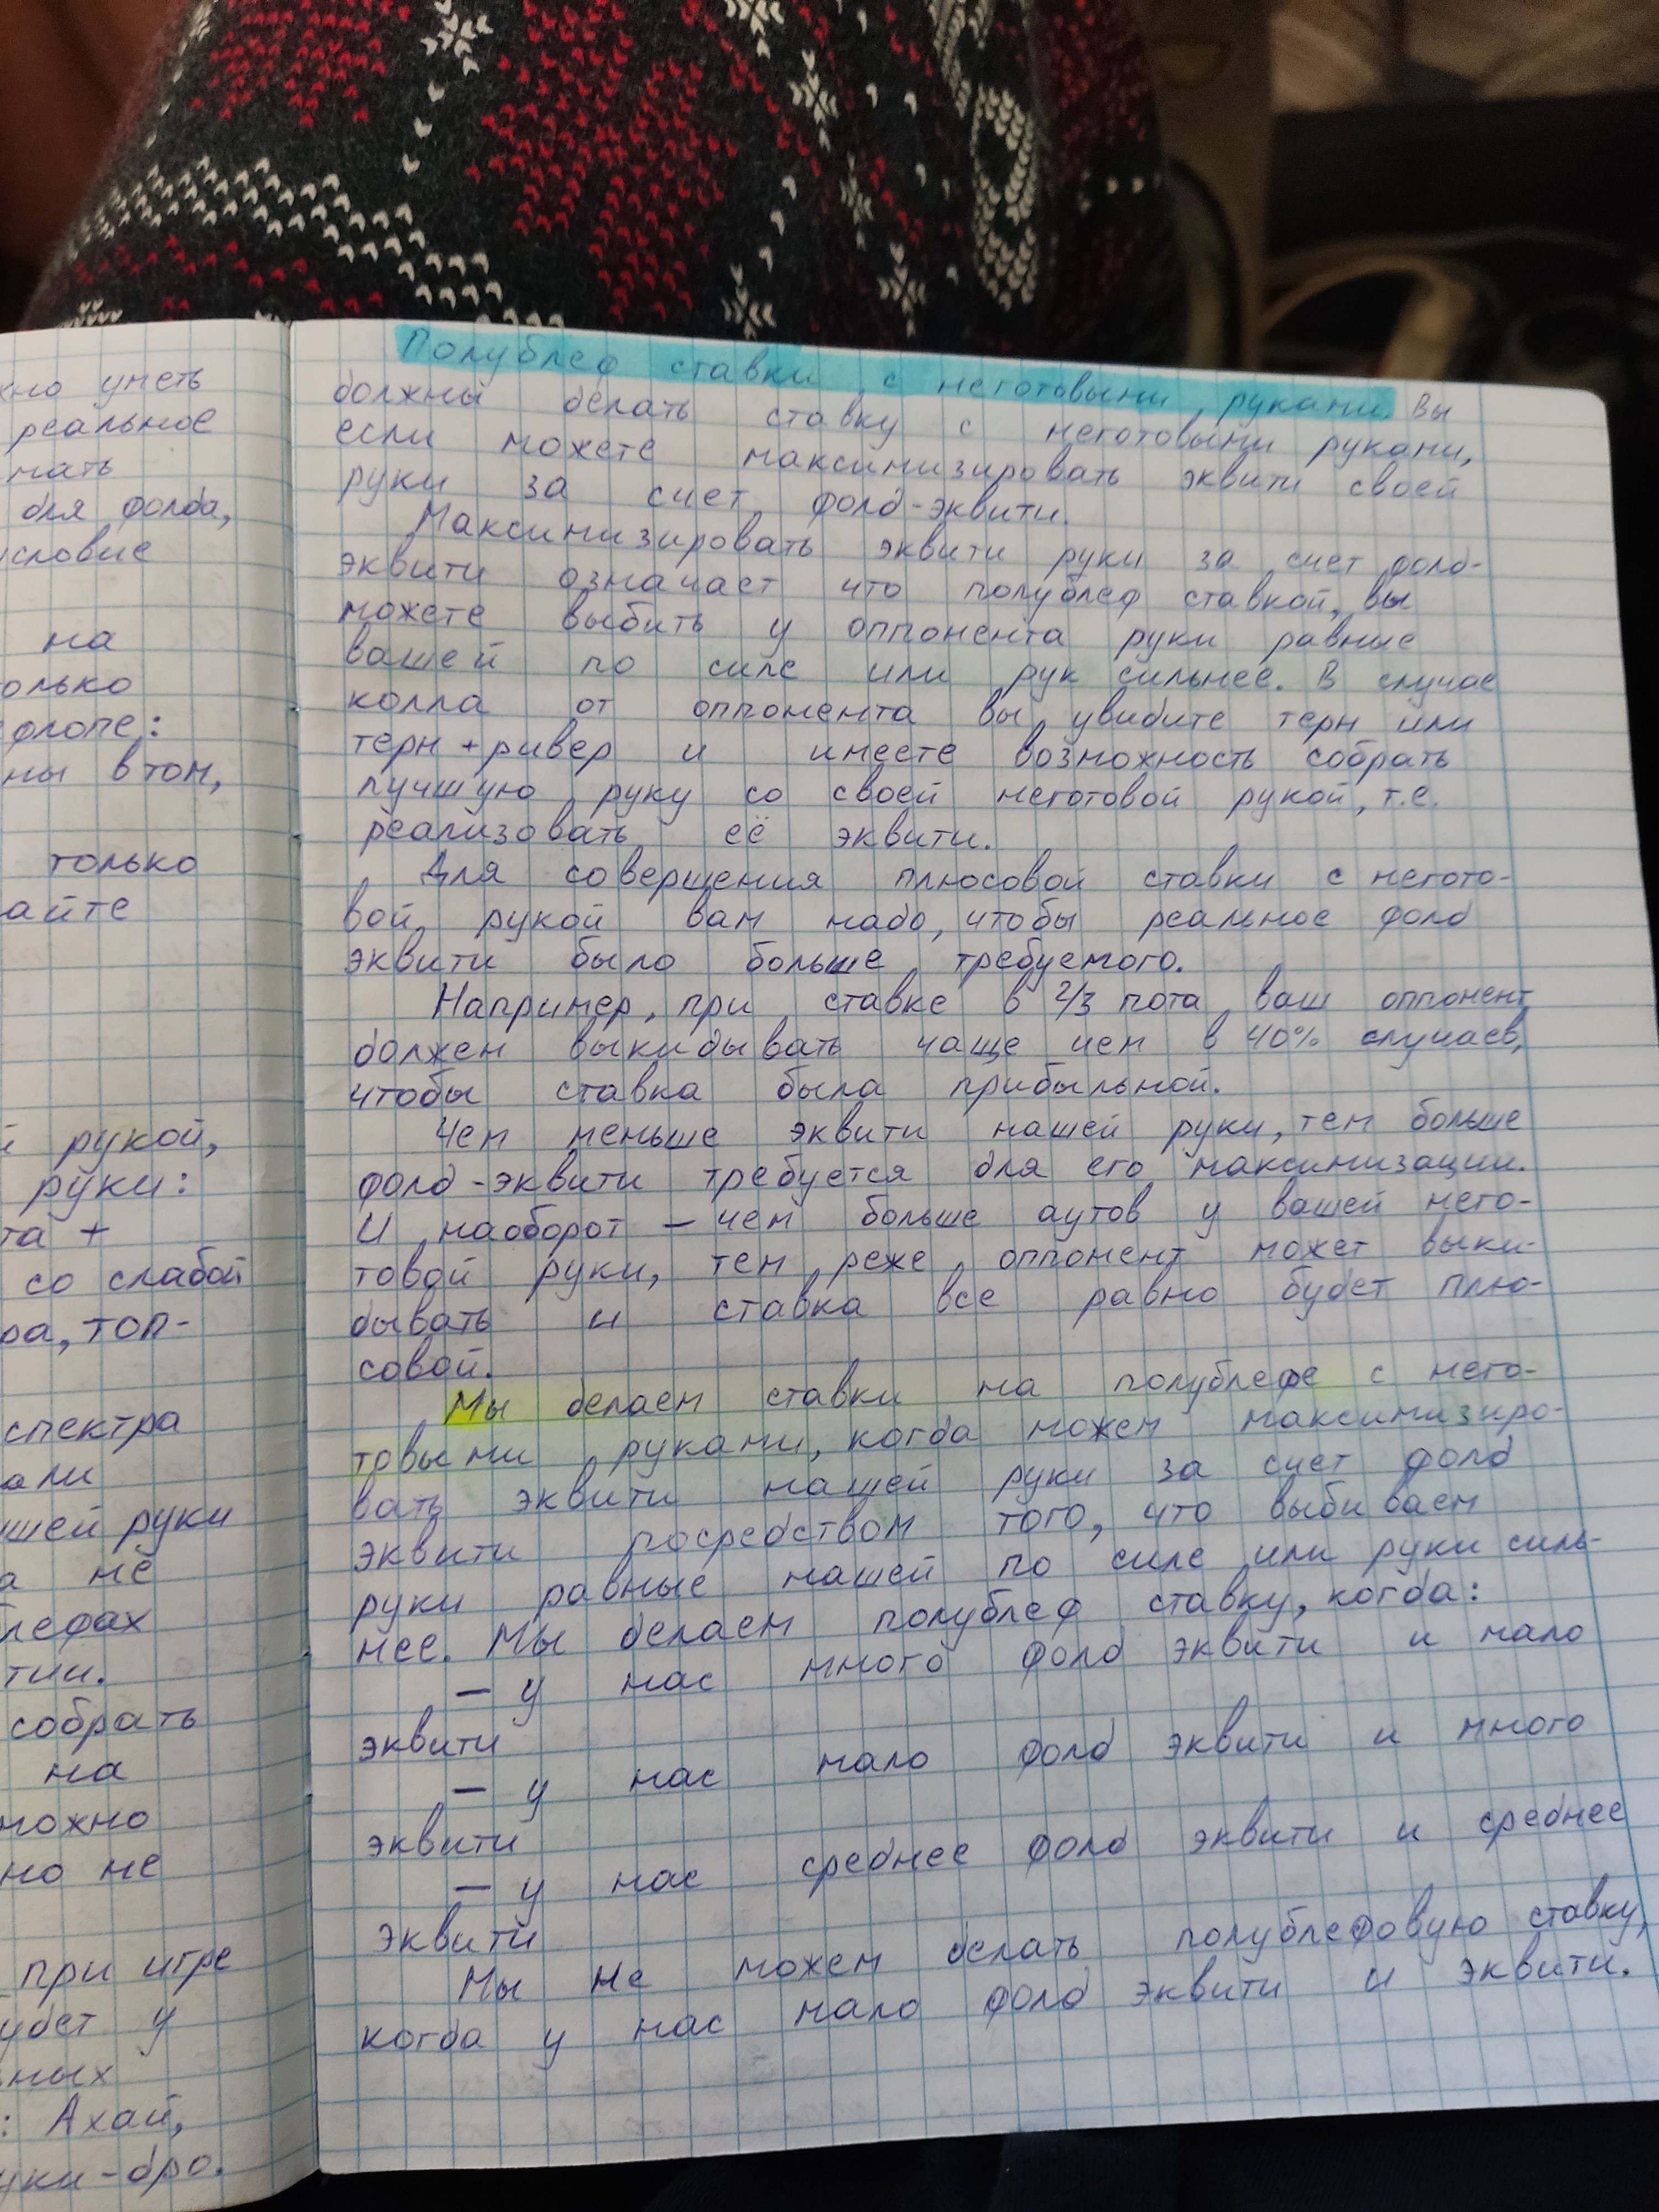 жно уметь
реальное
мать
для фолда,
условие
на
олько
флопе:
ны в том,
только
айте
й рукой,
руки:
та +
со слабой
ра, топ-
спектра
али
шей руки
а не
лефах
тии.
собрать
на
можно
но не
при игре
удет у
ных
: Ахай,
уки-дро.
Полублеф ставки с неготовыми руками. Вы
должны делать ставку с неготовыми руками,
если можете максимизировать эквити своей
руки за счет фолд-эквити.
Максимизировать эквити руки за счет фолд-
эквити означает что полублеф ставкой, вы
можете выбить у оппонента руки равные
вашей по силе или рук сильнее. В случае
колла от оппонента вы увидите терн или
терн + ривер и имеете возможность собрать
лучшую руку со своей неготовой рукой, т.е.
реализовать её эквити.
Для совершения плюсовой ставки с негото-
вой рукой вам надо, чтобы реальное фолд
эквити было больше требуемого.
Например, при ставке в 2/3 пота ваш оппонент
должен выкидывать чаще чем в 40% случаев,
чтобы ставка была прибыльной.
Чем меньше эквити нашей руки, тем больше
фолд-эквити требуется для его максимизации.
И наоборот – чем больше аутов у вашей него-
товой руки, тем реже оппонент может выки-
дывать и ставка все равно будет плю-
совой.
Мы делаем ставки на полублефе с него-
товыми руками, когда можем максимизиро-
вать эквити нашей руки за счет фолд
эквити посредством того, что выбиваем
руки равные нашей по силе или руки силь-
нее. Мы делаем полублеф ставку, когда:
– у нас много фолд эквити и мало
эквити
– у нас мало фолд эквити и много
эквити
– у нас среднее фолд эквити и среднее
эквити
Мы не можем делать полублефовую ставку,
когда у нас мало фолд эквити и эквити.